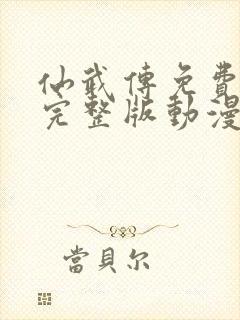 仙武傳免費
完整版動漫
當貝尔